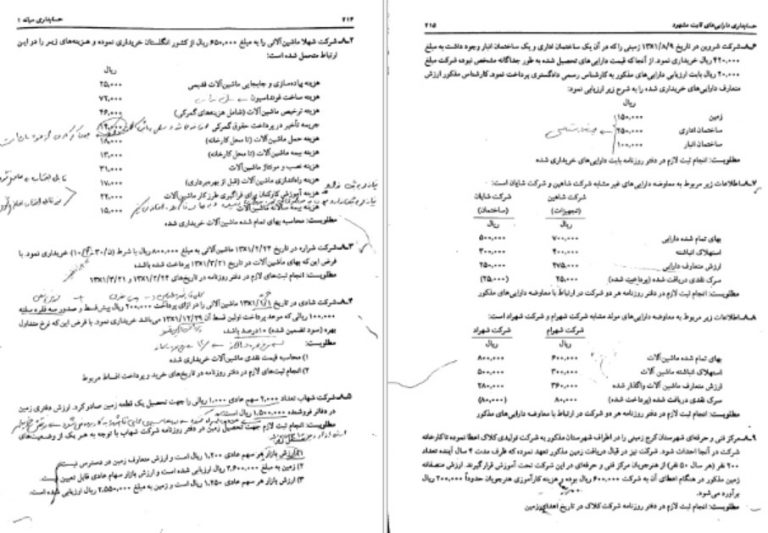 ۴۱۴
حسابداری میانه ۱
۲ـ۸ـ شرکت شهلا ماشین‌آلاتی را به مبلغ ۶۵۰,۰۰۰ ریال از کشور انگلستان خریداری نموده و هزینه‌های زیر را در این
ارتباط متحمل شده است:
ریال
هزینه پیاده‌سازی و جابجایی ماشین‌آلات قدیمی ۲۵,۰۰۰
هزینه ساخت فونداسیون ۷۲,۰۰۰
هزینه ترخیص ماشین‌آلات (شامل هزینه‌های گمرکی) ۴۶,۰۰۰
جریمه تأخیر در پرداخت حقوق گمرکی
هزینه حمل ماشین‌آلات (تا محل کارخانه) ۱۸,۰۰۰
هزینه بیمه ماشین‌آلات (تا محل کارخانه) ۱۳,۰۰۰
هزینه نصب و مونتاژ ماشین‌آلات ۳۱,۰۰۰
هزینه راه‌اندازی ماشین‌آلات (قبل از بهره‌برداری) ۱۷,۰۰۰
هزینه آموزش کارکنان برای فراگیری طرز کار ماشین‌آلات ۲۲,۰۰۰
هزینه بیمه سالانه ماشین‌آلات ۱۵,۰۰۰
مطلوبست: محاسبه بهای تمام شده ماشین‌آلات خریداری شده
۳ـ۸ـ شرکت شراره در تاریخ ۱۳۸۱/۲/۲۴ ماشین‌آلاتی به مبلغ ۸۰۰,۰۰۰ ریال با شرط (ن/۳۰-۲/۱۰) خریداری نمود. با
فرض این که بهای ماشین‌آلات در تاریخ ۱۳۸۱/۳/۲۱ پرداخت شده باشد
مطلوبست: انجام ثبت‌های لازم در دفتر روزنامه در تاریخ‌های ۱۳۸۱/۲/۲۴ و ۱۳۸۱/۳/۲۱
۴ـ۸ـ شرکت شادی در تاریخ ۱۳۸۱/۱/۱ ماشین آلاتی را در ازای پرداخت ۲۰۰,۰۰۰ ریال پیش‌قسط و صدور سه فقره سفته
۱۰۰,۰۰۰ ریالی که موعد پرداخت اولین قسط آن ۱۳۸۱/۱۲/۲۹ می‌باشد خریداری نمود. با فرض این که نرخ متداول
بهره (سود تضمین شده) ۱۰درصد باشد
مطلوبست:
۱) محاسبه قیمت نقدی ماشین‌آلات خریداری شده
۲) انجام ثبت‌های لازم در دفتر روزنامه در تاریخ‌های خرید و پرداخت اقساط مربوط
۵ـ۸ـ شرکت شهاب تعداد ۲,۰۰۰ سهم عادی ۱,۰۰۰ ریالی را جهت تحصیل یک قطعه زمین صادر کرد. ارزش دفتری زمین
در دفاتر فروشنده ۱,۵۰۰,۰۰۰ ریال است
مطلوبست: انجام ثبت لازم جهت تحصیل زمین در دفتر روزنامه شرکت شهاب با توجه به هر یک از وضعیت‌های
۱) ارزش بازار هر سهم عادی ۱,۲۰۰ ریال است و ارزش متعارف زمین در دسترس نیست
۲) زمین به مبلغ ۲,۶۰۰,۰۰۰ ریال ارزیابی شده است و ارزش بازار سهام عادی قابل تعیین نیست
۳) ارزش بازار هر سهم عادی ۱,۲۵۰ ریال است و زمین به مبلغ ۲,۵۵۰,۰۰۰ ریال ارزیابی شده است.
حسابداری دارایی‌های ثابت مشهود
۴۱۵
۶ـ۸ـ شرکت شروین در تاریخ ۱۳۸۱/۸/۹ زمینی را که در آن یک ساختمان اداری و یک ساختمان انبار وجود داشت به مبلغ
۴۲۰,۰۰۰ ریال خریداری نمود. از آنجا که قیمت دارایی‌های تحصیل شده به طور جداگانه مشخص نبوده شرکت مبلغ
۲۰,۰۰۰ ریال بابت ارزیابی دارایی‌های مذکور به کارشناس رسمی دادگستری پرداخت نمود. کارشناس مذکور ارزش
متعارف دارایی‌های خریداری شده را به شرح زیر ارزیابی نمود:
ریال
زمین ۱۵۰,۰۰۰
ساختمان اداری ۲۵۰,۰۰۰
ساختمان انبار ۱۰۰,۰۰۰
مطلوبست: انجام ثبت لازم در دفتر روزنامه بابت دارایی‌های خریداری شده
۷ـ۸ـ اطلاعات زیر مربوط به معاوضه دارایی‌های غیر مشابه شرکت شاهین و شرکت شایان است:
شرکت شاهین شرکت شایان
(تجهیزات) (ساختمان)
ریال ریال
بهای تمام شده دارایی ۷۰۰,۰۰۰ ۵۰۰,۰۰۰
استهلاک انباشته ۴۰۰,۰۰۰ ۳۰۰,۰۰۰
ارزش متعارف دارایی ۲۷۵,۰۰۰ ۲۵۰,۰۰۰
سرک نقدی دریافت شده (پرداخت شده) ۲۵,۰۰۰ (۲۵,۰۰۰)
مطلوبست: انجام ثبت لازم در دفتر روزنامه هر دو شرکت در ارتباط با معاوضه دارایی‌های مذکور
۸ـ۸ـ اطلاعات زیر مربوط به معاوضه دارایی‌های مولد مشابه شرکت شهرام و شرکت شهراد است:
شرکت شهرام شرکت شهراد
ریال ریال
بهای تمام شده ماشین‌آلات ۶۰۰,۰۰۰ ۸۰۰,۰۰۰
استهلاک انباشته ماشین آلات ۳۰۰,۰۰۰ ۵۰۰,۰۰۰
ارزش متعارف ماشین آلات واگذار شده ۳۶۰,۰۰۰ ۲۸۰,۰۰۰
سرک نقدی دریافت شده (پرداخت شده) ۸۰,۰۰۰ (۸۰,۰۰۰)
مطلوبست: انجام ثبت لازم در دفتر روزنامه هر دو شرکت در ارتباط با معاوضه دارایی‌های مذکور
۹ـ۸ـ مرکز فنی و حرفه‌ای شهرستان کرج زمینی را در اطراف شهرستان مذکور به شرکت تولیدی کلاک اعطا نموده تا کارخانه
شرکت در آنجا احداث شود. شرکت نیز در قبال دریافت زمین مذکور تعهد نموده که ظرف مدت ۴ سال آینده تعداد
۲۰۰ نفر (هر سال ۵۰ نفر) از هنرجویان مرکز فنی و حرفه‌ای در این شرکت تحت آموزش قرار گیرند. ارزش منصفانه
زمین مذکور در هنگام اعطای آن به شرکت ۶۰۰,۰۰۰ ریال بوده و هزینه کارآموزی هنرجویان حدوداً ۲۰۰,۰۰۰ ریال
برآورد می‌شود.
مطلوبست: انجام ثبت لازم در دفتر روزنامه شرکت کلاک در تاریخ اهدای زمین